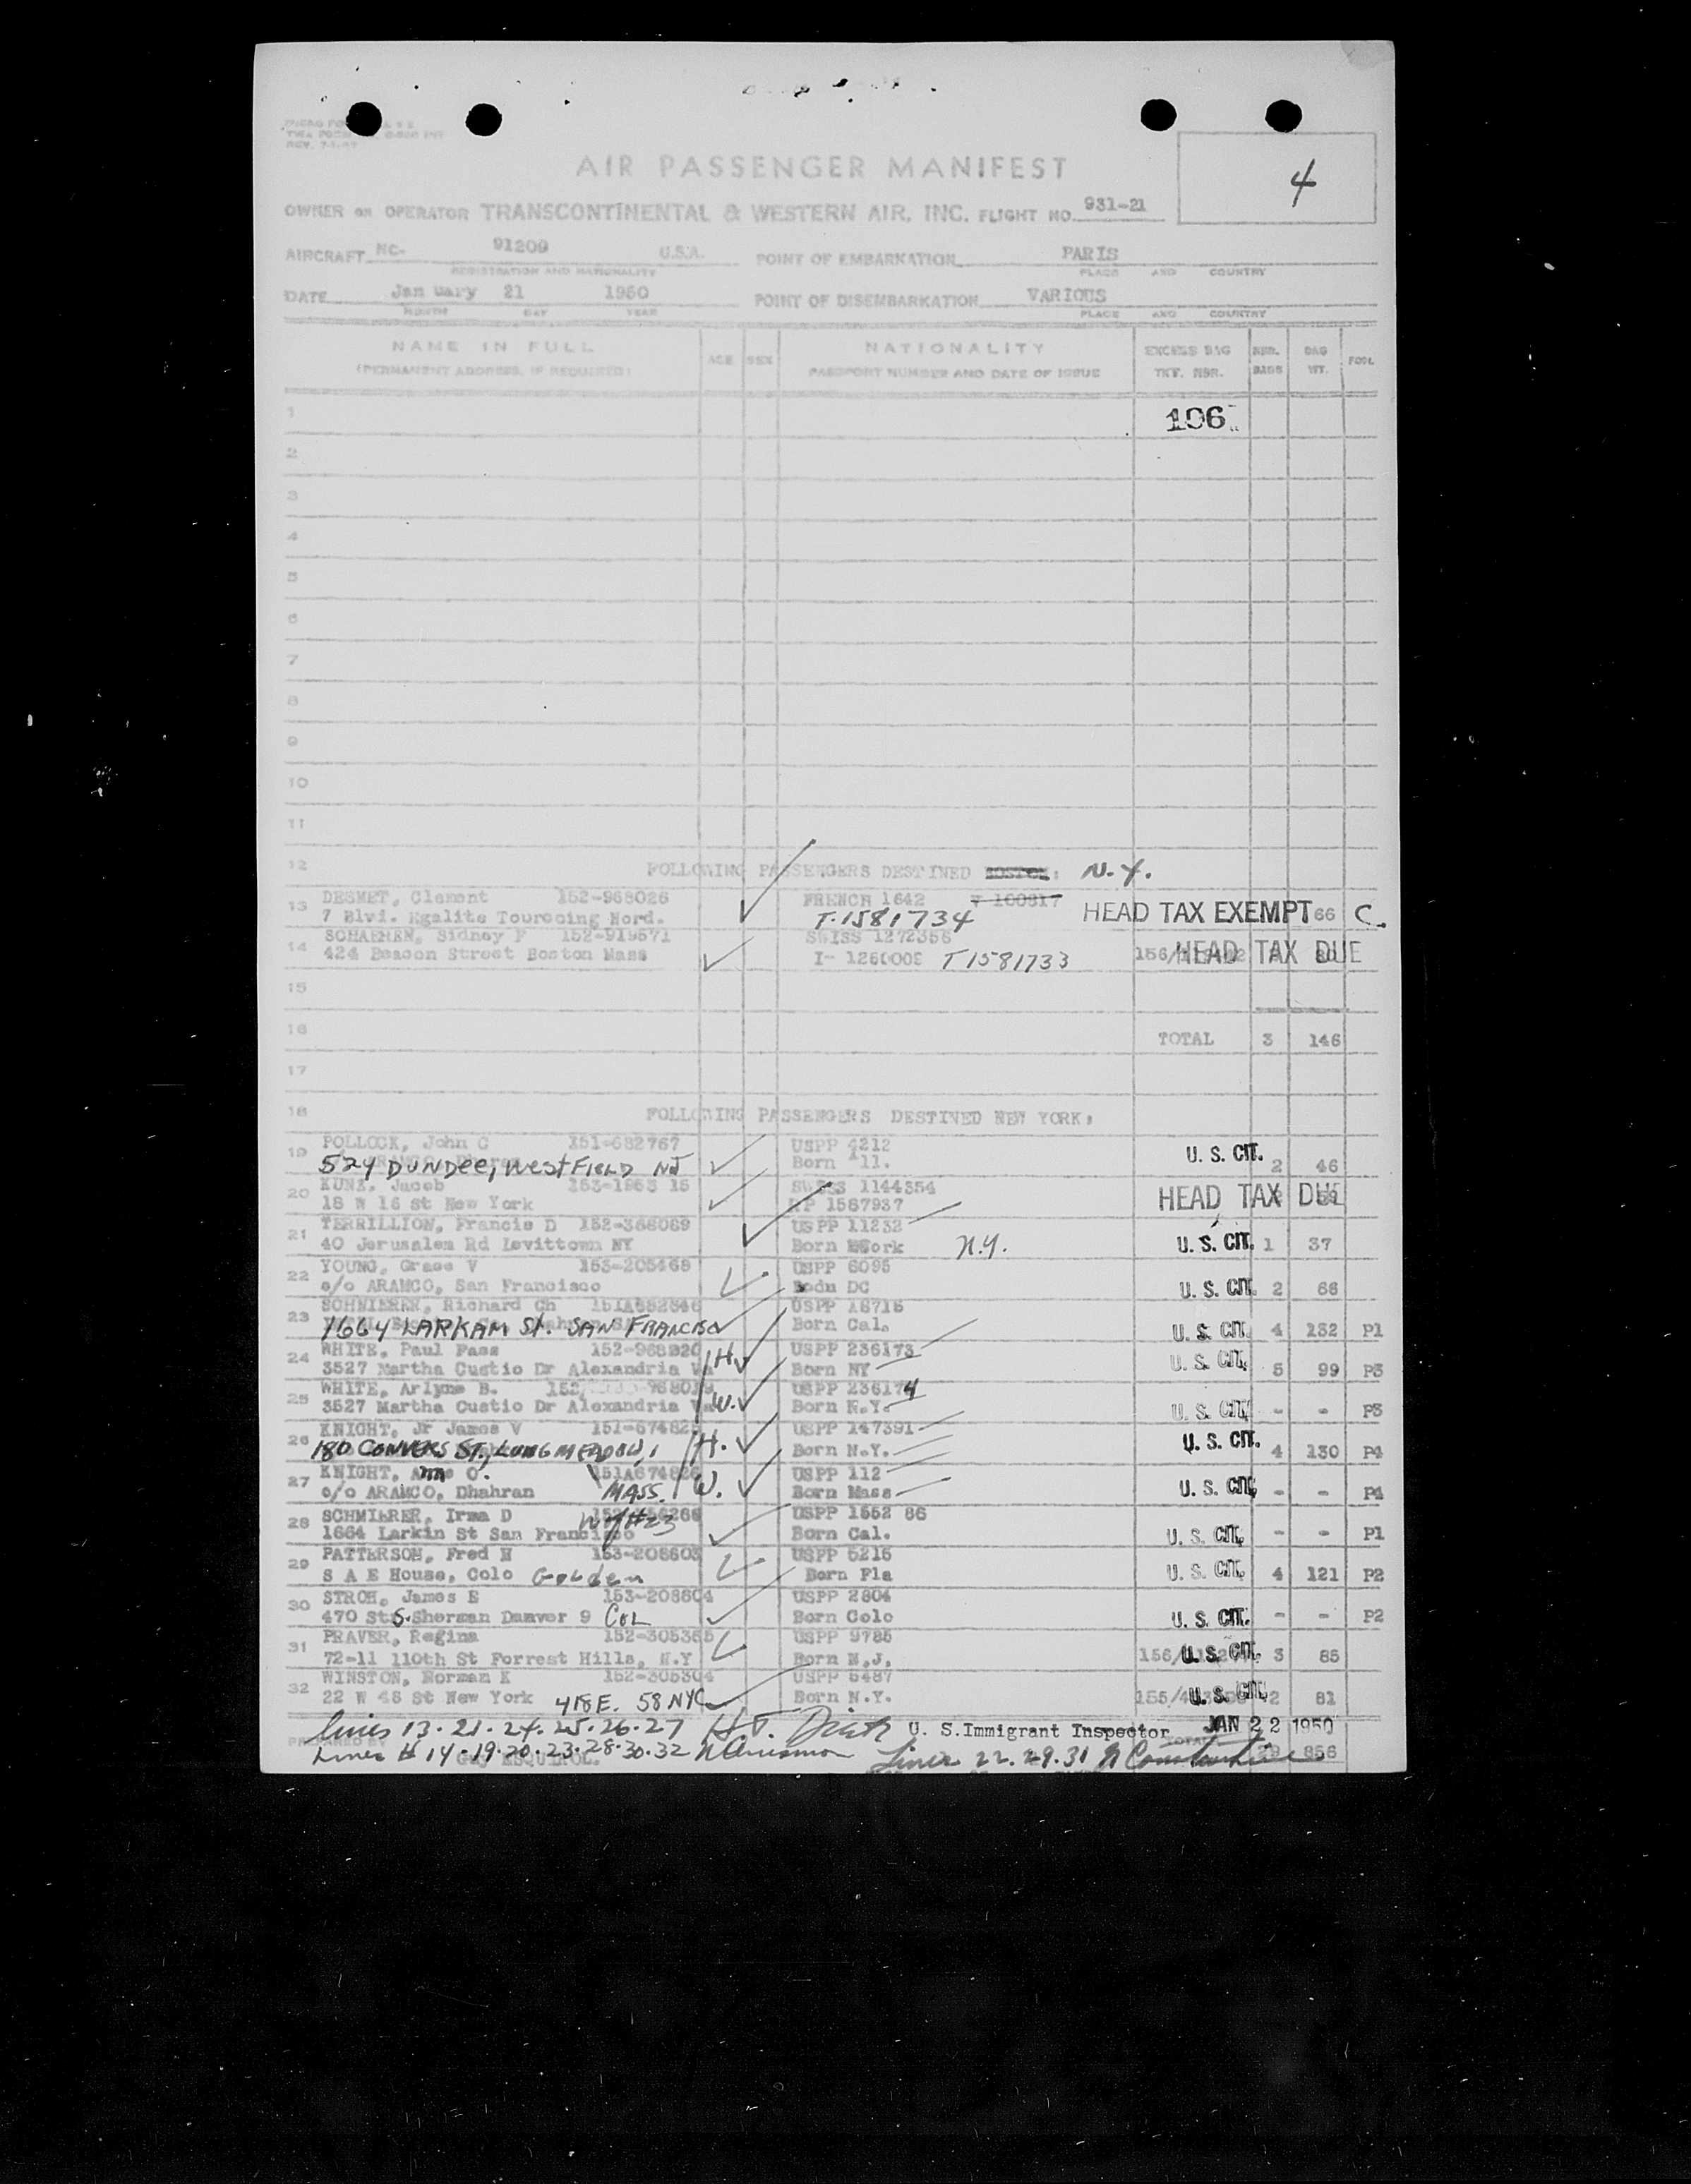 4
AIR PASSENGER MANIFEST
OWNER OR OPERATOR TRANSCONTINENTAL & WESTERN AIR, INC. FLIGHT NO. 931-21
AIRCRAFT NC- 91209 U.S.A. POINT OF EMBARKATION PARIS
REGISTRATION AND NATIONALITY PLACE AND COUNTRY
DATE January 21 1950 POINT OF DISEMBARKATION VARIOUS
MONTH DAY YEAR PLACE AND COUNTRY
NAME IN FULL AGE SEX NATIONALITY EXCESS BAG NBR. BAG
(PERMANENT ADDRESS, IF REQUIRED) PASSPORT NUMBER AND DATE OF ISSUE TKT. NBR. BAGS WT.
1 106
2
3
4
5
6
7
8
9
10
11
12 FOLLOWING PASSENGERS DESTINED BOSTON: N.Y.
13 DESMET, Clement 152-968026 FRENCH 1642
7 Blvd. Egalite Tourcoing Nord. T-1581734 HEAD TAX EXEMPT 66 C.
14 SCHAEREN, Sidney F 152-919571 SWISS 1272356
424 Beacon Street Boston Mass I- 1260009 T1581733 156/ HEAD TAX DUE
15
16 TOTAL 3 146
17
18 FOLLOWING PASSENGERS DESTINED NEW YORK:
19 POLLOCK, John C 151-682767 USPP 4212 U. S. CIT.
524 DUNDEE, WestFIELD NJ Born Ill. 2 46
20 KUNZ, Jacob SWISS 1144354
18 W 16 St New York RP 1567937 HEAD TAX DUE
21 TERRILLION, Francis D 152-388089 USPP 11232
40 Jerusalem Rd Levittown NY Born York N.Y. U. S. CIT. 1 37
22 YOUNG, Grace V 153-205469 USPP 6095
c/o ARAMCO, San Francisco Bodn DC U. S. CIT. 2 66
23 SCHMIERER, Richard Ch USPP 16715
1664 LARKAM St. SAN FRANCISCO Born Cal. U. S. CIT. 4 132 P1
24 WHITE, Paul Fass 152-968020 H USPP 236173
3527 Martha Custio Dr Alexandria Va Born NY U. S. CIT. 5 99 P3
25 WHITE, Arlyne B. W. USPP 236174
3527 Martha Custio Dr Alexandria Va Born N.Y. U. S. CIT. - - P3
26 KNIGHT, Jr James V 151-674825 H. USPP 147391
180 CONVERS ST., LONGMEADOW, Born N.Y. U. S. CIT. 4 130 P4
27 KNIGHT, O. 151A674826 W. USPP 112
c/o ARAMCO, Dhahran MASS. Born Mass U. S. CIT. - - P4
28 SCHMIERER, Irma D W/#23 USPP 1552 86
1664 Larkin St San Francisco Born Cal. U. S. CIT. - - P1
29 PATTERSON, Fred H 153-208603 USPP 5216
S A E House, Colo Golden Born Fla U. S. CIT. 4 121 P2
30 STROH, James E 153-208604 USPP 2804
470 St S. Sherman Danver 9 COL Born Colo U. S. CIT. - - P2
31 PRAVER, Regina 152-305365 USPP 9785
72-11 110th St Forrest Hills, N.Y Born N.J. 156/ U. S. CIT. 3 85
32 WINSTON, Norman K 152-305304 USPP 5487
22 W 48 St New York 418 E. 58 NYC Born N.Y. 155/ U. S. CIT. 2 81
Lines 13.21.24.25.26.27 U. S. Immigrant Inspector JAN 22 1950
PREPARED BY TOTAL 856
Lines # 14.19.20.23.28.30.32 Lines 22.29.31